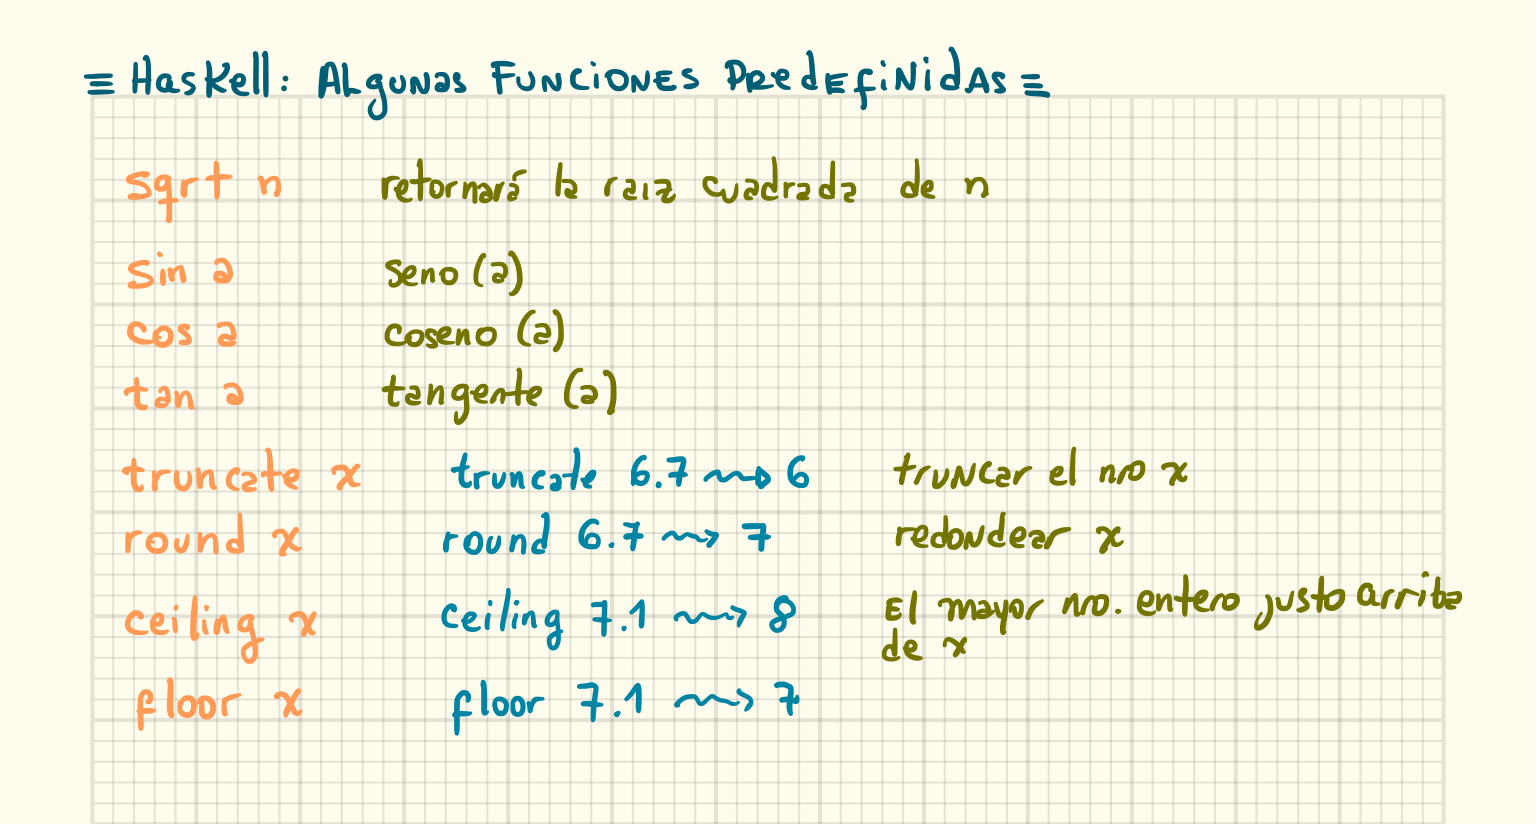 = Haskell: ALgUNas FUNCIONES PRedEfiNidAs =
sqrt n retornará la raiz cuadrada de n
sin a seno (a)
cos a coseno (a)
tan a tangente (a)
truncate x truncate 6.7 ⇝ 6 truncar el nro x
round x round 6.7 ⇝ 7 redondear x
ceiling x ceiling 7.1 ⇝ 8 El mayor nro. entero justo arriba
de x
floor x floor 7.1 ⇝ 7